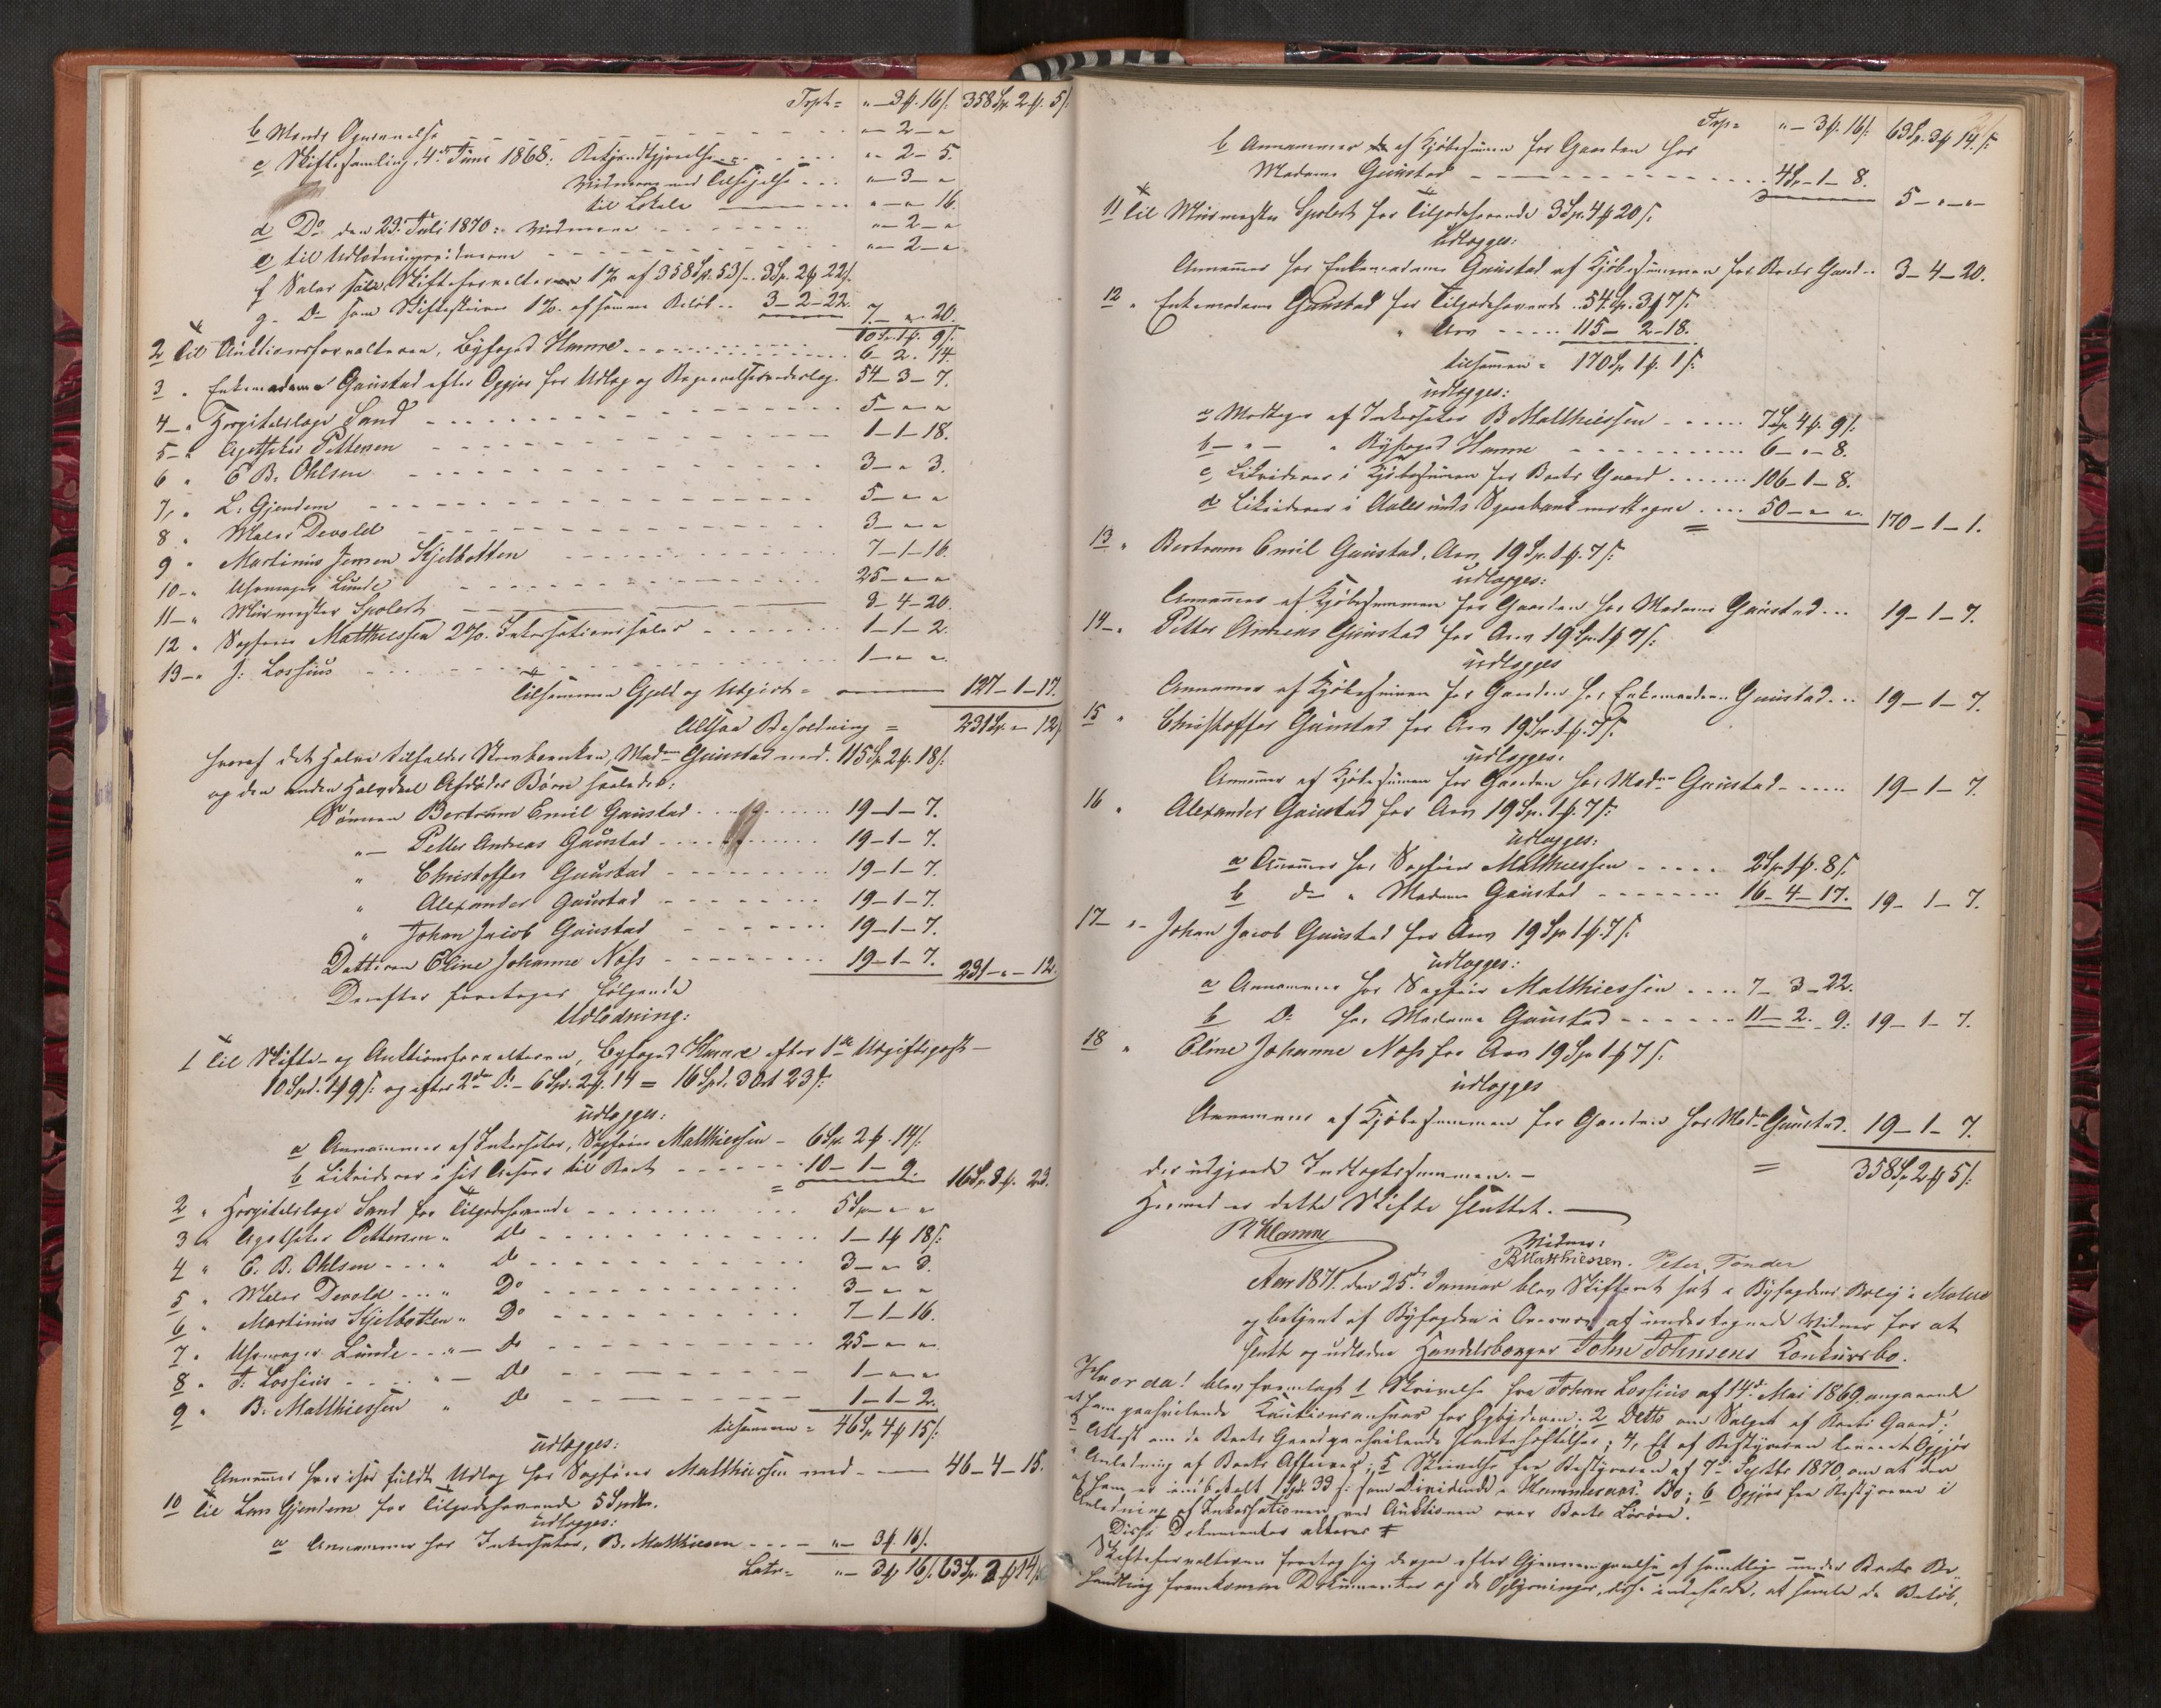 Trpt = " - 3 ƒ. 16 s. 358 Sp. 2 ƒ. 5 s.
b Mands Opnævnelse - - - " - 2 - "
c Skiftesamling 4de Juni 1868: Bekjendtgjørelse - - - " - 2 - 5.
Vidnerne med Tilsigelse - - - " - 3 - "
til Lokale " - " - 16.
d Do den 23de Juli 1870: Vidnerne - - - " - 2 - "
e til Udlodningsvidnerne - - - " - 2 - "
f Salær som Skifteforvalter 1% af 358 Sp. 53 s. - 3 Sp. 2 ƒ 22 s.
g - Do som Skifteskriver 1% af samme Beløb - 3 - 2 - 22. 7 - " - 20.
10 Sp. 1 ƒ. 9 s.
2 Til Auktionsforvalteren, Byfoged Hamme - - - 6 - 2 - 14.
3 " Enkemadame Gaustad efter Opgjør for Udlæg og Begravelsesvederlag. 54 - 3 - 7.
4 - " Hospitalslæge Sand - - - 5 - " - "
5 - " Apotheker Pettersen - - - 1 - 1 - 18.
6 " C B. Ohlsen - - - 3 - " 3.
7, " L. Gjendem - - - 5 - " - "
8 " Maler Devold - - - 3 - " - "
9 " Martinus Jensen Kjelbotten - - - 7 - 1 - 16.
10 - " Uhrmager Lunde - - - 25 - " - "
11 - " Muurmester Spolert - - - 3 - 4 - 20.
12 " Sagfører Matthiessen 2% Inkassationssalær - - - 1 - 1 - 2.
13 - " J. Lossius - - - 1 - " - "
Tilsammen Gjeld og Udgivt = 127 - 1 - 17.
Altsaa Beholdning = 231 Sp. " 12 s.
hvoraf det halve tilfalder Stervboenken, Madme Gaustad med 115 Sp. 2 ƒ. 18 s.
og den anden Halvdeel Afdødes Børn saaledes:
Sønnen Bertram Emil Gaustad - - - 19 - 1 - 7.
" - Petter Andreas Gaustad - - - 19 - 1 - 7.
" Christoffer Gaustad - - - 19 - 1 - 7.
" Alexander Gaustad - - - 19 - 1 - 7.
" Johan Jacob Gaustad - - - 19 - 1 - 7.
Datteren Eline Johanne Noss - - - 19 - 1 - 7. 231 - " - 12.
Derefter foretoges følgende
Udlodning:
1 Til Skifte- og Auktionsforvalteren, Byfoged Hamme efter 1ste Udgiftspost -
10 Spd. 1 ƒ 9 s. og efter 2den Do - 6 Sp. 2 ƒ. 14 = 16 Spd. 3 Ort 23 s.
udlægges:
a Annammes af Inkassator, Sagfører Matthiessen - 6 Sp. 2 ƒ. 14 s.
b Likviderer i sit Ansvar til Boet - - - 10 - 1 - 9. = 16 Sp. 3 ƒ. 23.
2 " Hospitalslæge Sand for Tilgodehavende - - - 5 Sp - " - "
3 " Apotheker Pettersen " do - - - 1 - 1 ƒ 18 s.
4 " C. B. Ohlsen - - " do - - - 3 - " 3.
5 " Maler Devold - - " Do - - - 3 - " - "
6 " Martinus Kjelbotten " Do - - - 7 - 1 - 16.
7 " Uhrmager Lunde - - " - do - - - 25 - " - "
8 " J. Lossius - - - " - do - - - 1 - " - "
9 " B. Matthiessen " do - - - 1 - 1 - 2.
tilsammen = 46 Sp. 4 ƒ 15 s.
udlægges:
Annammes hver især fuldt Udlæg hos Sagfører Matthiessen med - 46 - 4 - 15.
10 Til Lars Gjendem for Tilgodehavende 5 Spdlr.
udlægges:
a Annammes hos Inkassator, B. Matthiesen - - - " - 3 ƒ. 16 s.
Latr = " - 3 ƒ 16 s. 63 Sp. 3 ƒ 14 s.
Trp = " - 3 ƒ. 16 s. 63 Sp. 3 ƒ 14 s.
b Annammes af Kjøbesummen for Gaarden hos
Madame Gaustad - - - 4 Sp - 1 - 8. 5 - " - "
11 Til Muurmester Spolert for Tilgodehavende 3 Sp. 4 ƒ 20 s.
udlægges:
Annammes hos Enkemadame Gaustad af Kjøbesummen for Boets Gaard - 3 - 4 - 20.
12 " Enkemadame Gaustad for Tilgodehavende - 54 Sp. 3 ƒ 7 s.
" Arv - - - 115 - 2 - 18.
tilsammen = 170 Sp. 1 ƒ. 1 s.
udlægges:
a Modtages af Inkassator B Matthiessen - - - 7 Sp. 4 ƒ. 9 s.
b - " - " Byfoged Hamme - - - 6 - " - 8.
c Likviderer i Kjøbesummen for Boets Gaard - - - 106 - 1 - 8.
d Likviderer i Aalesunds Sparebank modtagne - - - 50 - " - " = 170 - 1 - 1.
13 " Bertram Emil Gaustad, Arv 19 Sp. 1 ƒ. 7 s.
udlægges:
Annammes af Kjøbesummen for Gaarden hos Madame Gaustad - - 19 - 1 - 7.
14 - " Petter Andreas Gaustad for Arv 19 Sp. 1 ƒ 7 s.
udlægges
Annammes af Kjøbesummen for Gaarden hos Enkemadam Gaustad - - 19 - 1 - 7.
15 " Christoffer Gaustad for Arv 19 Sp. 1 ƒ. 7 s.
udlægges:
Annammes af Kjøbesummen for Gaarden hos Madme Gaustad - - - 19 - 1 - 7.
16 " Alexander Gaustad for Arv 19 Sp. 1 ƒ. 7 s.
udlægges:
a Annammes hos Sagfører Matthiessen - - - 2 Sp. 1 ƒ. 8 s.
b do " Madame Gaustad - - - 16 - 4 - 17. 19 - 1 - 7.
17 - " - Johan Jacob Gaustad for Arv 19 Sp 1 ƒ. 7 s.
udlægges:
a Annammes hos Sagfører Matthiessen - - - 7 - 3 - 22.
b Do hos Madame Gaustad - - - 11 - 2 - 9. 19 - 1 - 7.
18 " Eline Johanne Noss for Arv 19 Sp 1 ƒ 7 s.
udlægges
Annammes af Kjøbesummen for Gaarden hos Madme Gaustad. 19 - 1 - 7.
der udgjorde Indtægtssummen. - = 358 Sp. 2 ƒ 5 s.
Hermed er dette Skifte sluttet. -
Hamme
Vidner:
B Matthiessen. Peter Tønder
Aar 1871 den 25de Januar blev Skifteret sat i Byfogdens Bolig i Molde
og betjent af Byfogden i Overvær af undertegnede Vidner for at
slutte og udlodne Handelsborger John Johnsens Konkursbo.
Hvorda! blev fremlagt 1 Skrivelse fra Johan Lossius af 14de Mai 1869 angaaende
et ham paahvilende Kautionsansvar for Opbyderen; 2 Detto om Salget af Boets Gaard;
3 Attest om de Boets Gaard paahvilende Pantehæftelser; 4, Et af Bestyreren leveret Opgjør
i Anledning af Boets Affairer; 5 Skrivelse fra Bestyreren af 7de Septbr 1870, om at der
af ham er indbetalt 1 Spd. 33 s. som Dividende i Hammeraas' Bo; 6 Opgjør fra Bestyreren i
Anledning af Inkassationen ved Auktionen over Boets Løsøre.
Disse Dokumenter akteres
Skifteforvalteren foretog sig derpaa efter Gjennemgaaelse af samtlige under Boets Be-
handling fremkomne Dokumenter og de Oplysninger, disse indeholde, at samle de Beløb,